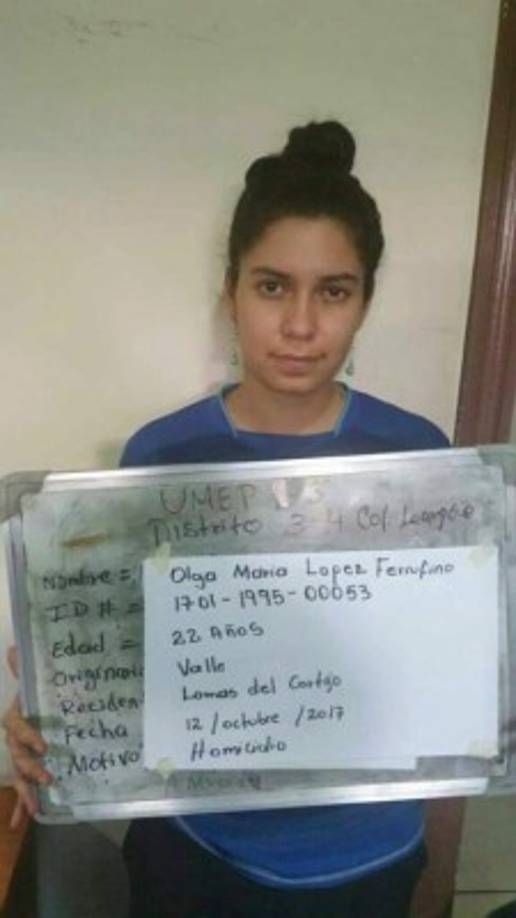 UMEP
Distrito 3-4 Col
Nombre = Olga Maria Lopez Ferrufino
ID # = 1701-1995-00053
Edad = 22 Años
Originario Valle
Residen Lomas del Cortijo
Fecha 12/octubre/2017
Motivo Homicidio